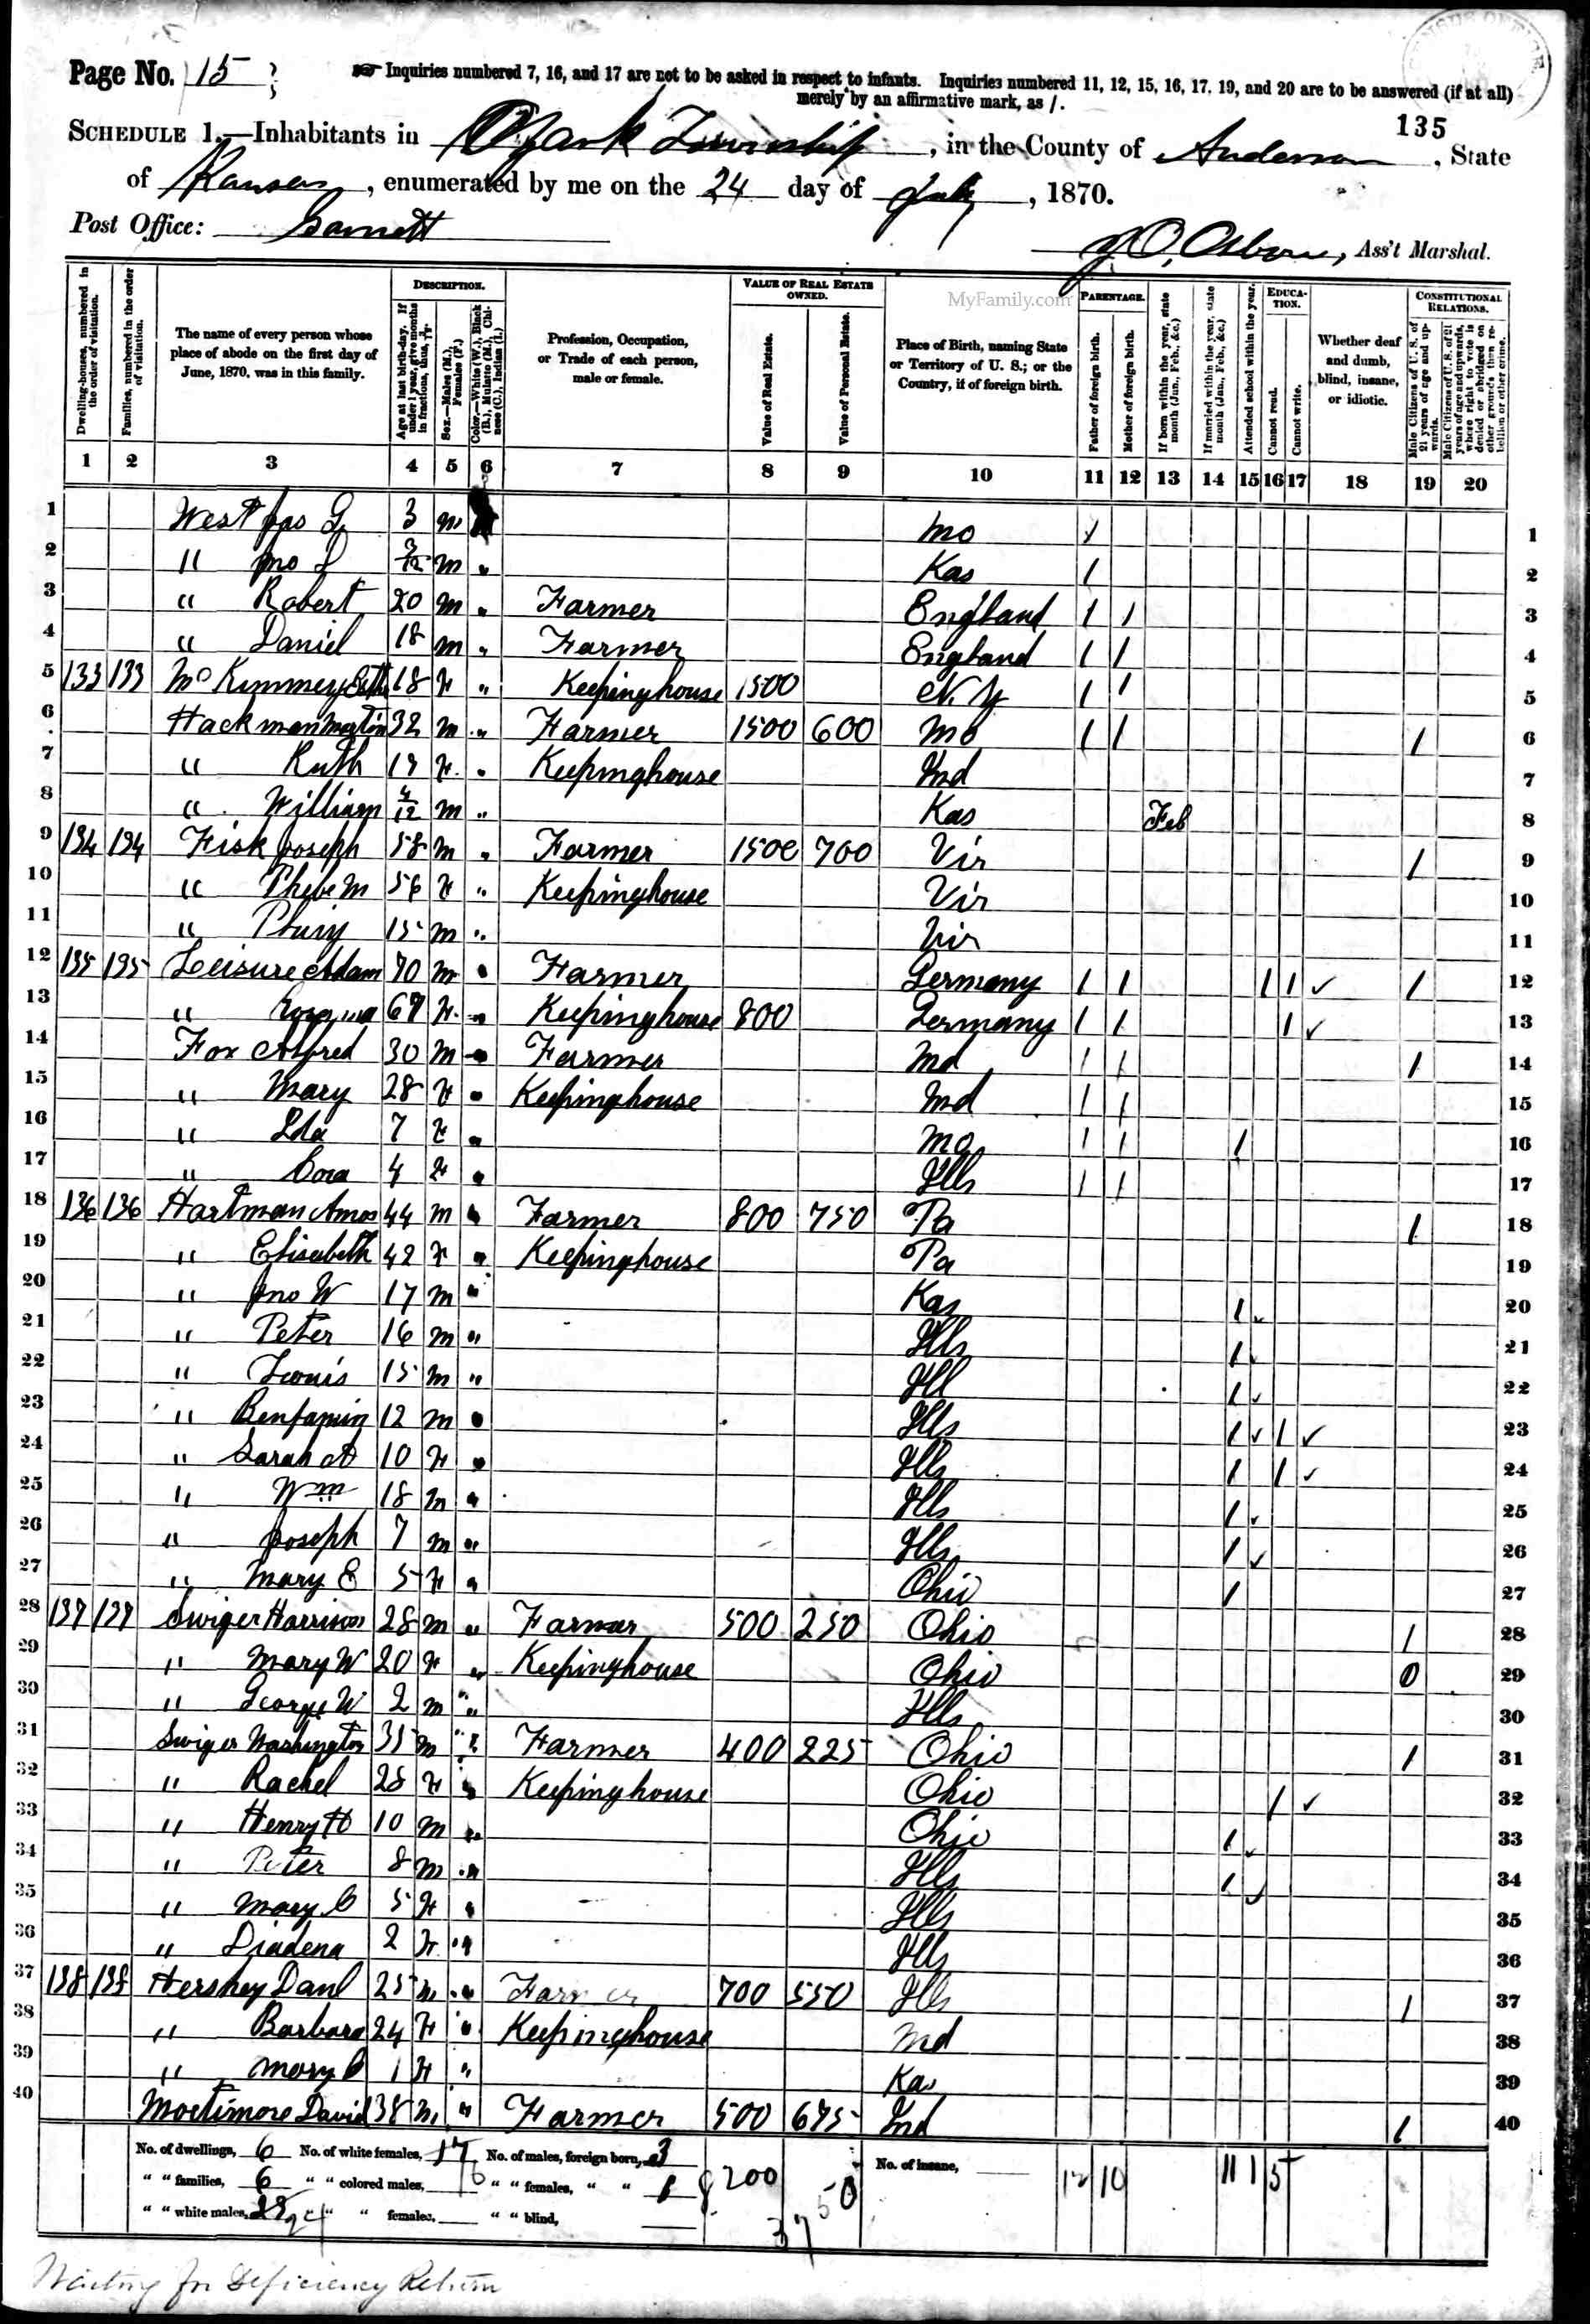 Page No. 15
Inquiries numbered 7, 16, and 17 are not to be asked in respect to infants. Inquiries numbered 11, 12, 15, 16, 17, 19, and 20 are to be answered (if at all) merely by an affirmative mark, as /.
135
SCHEDULE 1.—Inhabitants in Ozark Township, in the County of Anderson, State
of Kansas, enumerated by me on the 24 day of July, 1870.
Post Office: Garnett
Osborne, Ass't Marshal.
MyFamily.com
Dwelling-houses, numbered in the order of visitation.
Families, numbered in the order of visitation.
The name of every person whose place of abode on the first day of June, 1870, was in this family.
DESCRIPTION.
Age at last birth-day. If under 1 year, give months in fractions, thus,
Sex.—Males (M.), Females (F.)
Color.—White (W.), Black (B.), Mulatto (M.), Chinese (C.), Indian (I.)
Profession, Occupation, or Trade of each person, male or female.
VALUE OF REAL ESTATE OWNED.
Value of Real Estate.
Value of Personal Estate.
Place of Birth, naming State or Territory of U. S.; or the Country, if of foreign birth.
PARENTAGE.
Father of foreign birth.
Mother of foreign birth.
If born within the year, state month (Jan., Feb., &c.)
If married within the year, state month (Jan., Feb., &c.)
Attended school within the year.
EDUCATION.
Cannot read.
Cannot write.
Whether deaf and dumb, blind, insane, or idiotic.
CONSTITUTIONAL RELATIONS.
Male Citizens of U. S. of 21 years of age and upwards.
Male Citizens of U. S. of 21 years of age and upwards, whose right to vote is denied or abridged on other grounds than rebellion or other crime.
1 2 3 4 5 6 7 8 9 10 11 12 13 14 15 16 17 18 19 20
1 West Jas G 3 m Mo / 1
2 " Jno m " Kas / 2
3 " Robert 20 m " Farmer England / / 3
4 " Daniel 18 m " Farmer England / / 4
5 133 133 McKimmey 18 F " Keeping house 1500 N.Y / / 5
6 Hackman Martin 32 m " Farmer 1500 600 Mo / / / 6
7 " Ruth 19 F " Keeping house Ind 7
8 " William 4/12 m " Kas Feb 8
9 134 134 Fisk Joseph 58 m " Farmer 1500 700 Vir / 9
10 " Phebe M 56 F " Keeping house Vir 10
11 " 15 m " Vir 11
12 135 135 Leisure Adam 70 m " Farmer Germany / / / / ✓ / 12
13 " 67 F " Keeping house 800 Germany / / / ✓ 13
14 Fox Alfred 30 m " Farmer Md / / / 14
15 " Mary 28 F " Keeping house Md / / 15
16 " Ida 7 F " Mo / / / 16
17 " Cora 4 F " Ills / / 17
18 136 136 Hartman Amos 44 m " Farmer 800 750 Pa / 18
19 " Elisabeth 42 F " Keeping house Pa 19
20 " Jno W 17 m " Kas / 20
21 " Peter 16 m " Ills / 21
22 " Louis 15 m " Ill / ✓ 22
23 " Benjamin 12 m " Ills / ✓ / ✓ 23
24 " Sarah A 10 F " Ills / / ✓ 24
25 " Wm 18 m " Ills / ✓ 25
26 " Joseph 7 m " Ills / ✓ 26
27 " Mary E 5 F " Ohio / 27
28 137 137 Swiger Harrison 28 m " Farmer 500 250 Ohio / 28
29 " Mary W 20 F " Keeping house Ohio 0 29
30 " George W 2 m " Ills 30
31 Swiger Washington 35 m " Farmer 400 225 Ohio / 31
32 " Rachel 28 F " Keeping house Ohio / ✓ 32
33 " Henry H 10 m " Ohio / ✓ 33
34 " Peter 8 m " Ills / ✓ 34
35 " Mary C 5 F " Ills 35
36 " Diadena 2 F " Ills 36
37 138 138 Hershey Danl 25 m " Farmer 700 550 Ills / 37
38 " Barbara 24 F " Keeping house Md 38
39 " Mary C 1 F " Kas 39
40 Mortimore David 38 m " Farmer 500 675 Ind / 40
No. of dwellings, 6 No. of white females, 17 No. of males, foreign born, 3 8200 No. of insane, 12 10 11 1 5
" " families, 6 " " colored males, " " females, " " 1
" " white males, " " females, " " blind,
Waiting for Deficiency Return